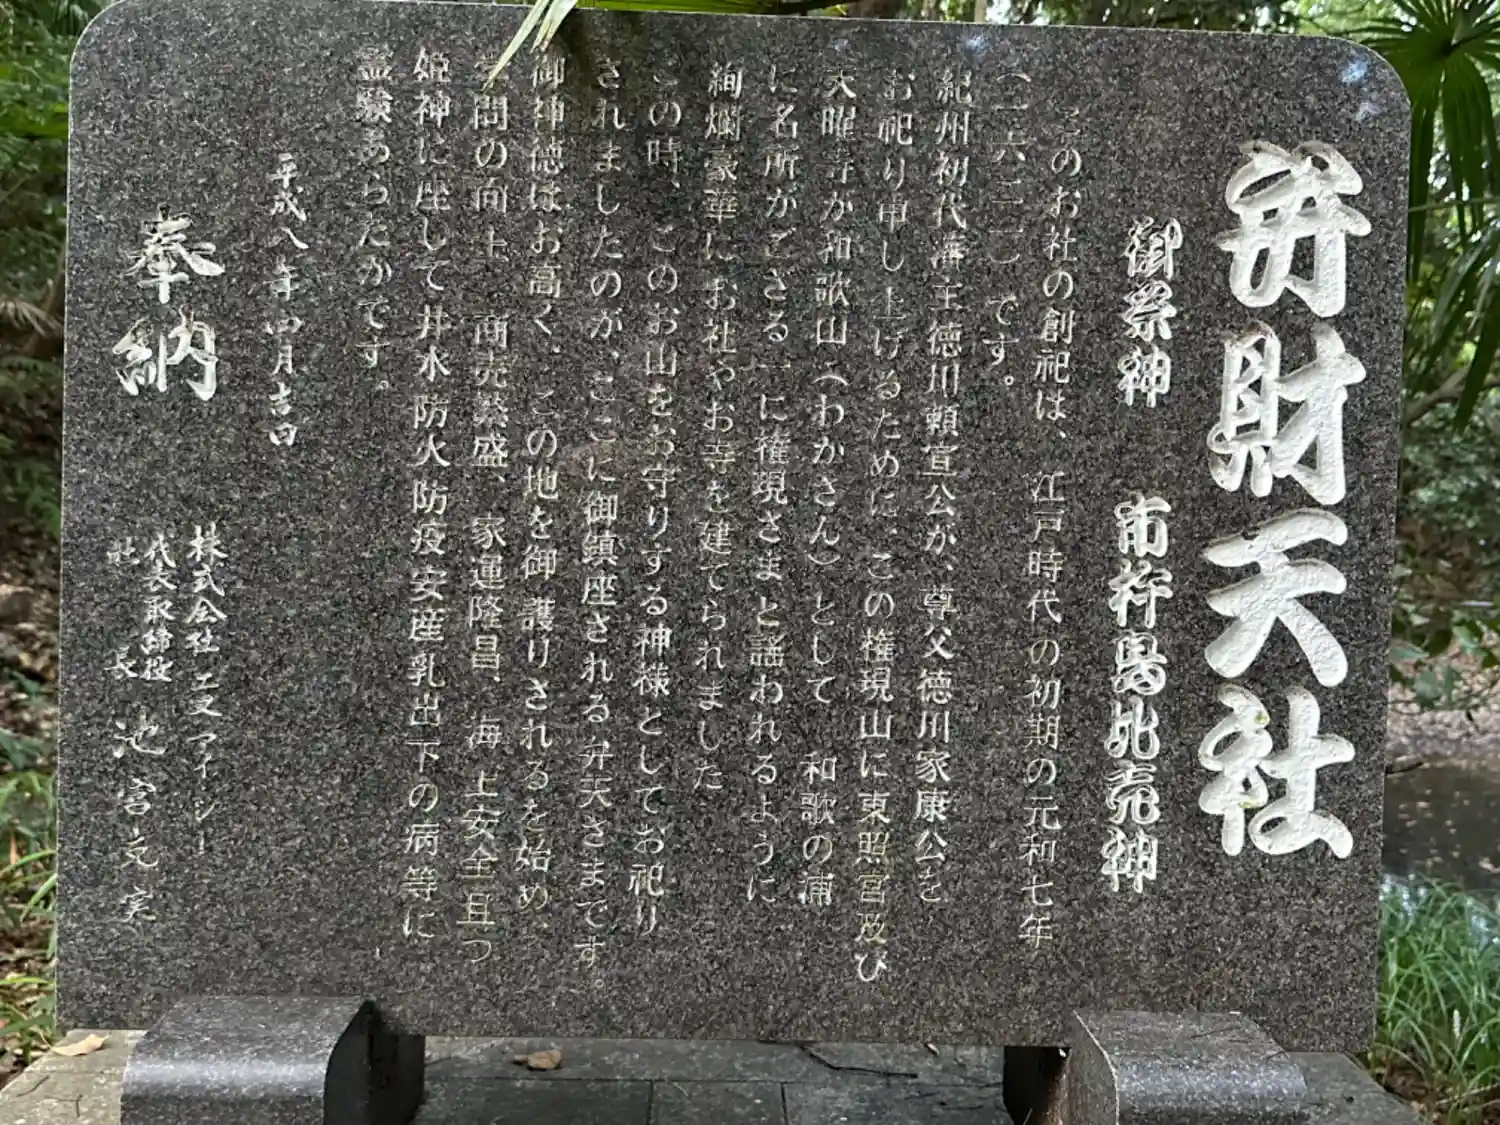 弁財天社
御祭神　市杵島比売神
このお社の創祀は、江戸時代の初期の元和七年
（一六二一）です。
紀州初代藩主徳川頼宣公が、尊父徳川家康公を
お祀り申し上げるために、この権現山に東照宮及び
天曜寺か和歌山（わかさん）として　和歌の浦
に名所がござる一に権現さまと謡われるように
絢爛豪華にお社やお寺を建てられました
この時、このお山をお守りする神様としてお祀り
されましたのが、ここに御鎮座される弁天さまです。
御神徳はお高く、この地を御護りされるを始め、
学問の向上、商売繁盛、家運隆昌、海上安全且つ
姫神に座して井水防火防疫安産乳出下の病等に
霊験あらたかです。
平成八年四月吉日
奉納
株式会社エヌアイシー
代表取締役
社長
池宮